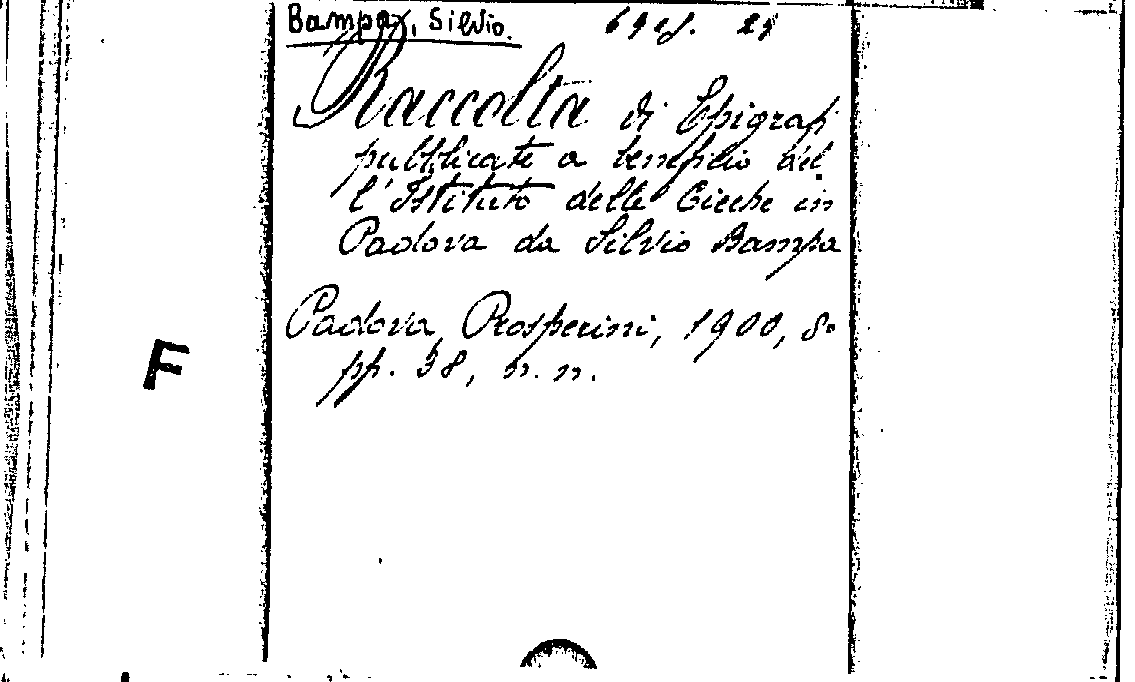 Bampa, Silvio.
Raccolta di Epigrafi
pubblicate a beneficio del-
l'Istituto delle Cieche in
Padova da Silvio Bampa
Padova, Prosperini, 1900, 8º
pp. 38, n. n.
F